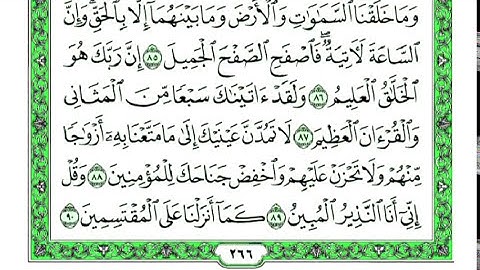 وَمَا خَلَقْنَا ٱلسَّمَٰوَٰتِ وَٱلْأَرْضَ وَمَا بَيْنَهُمَآ إِلَّا بِٱلْحَقِّ ۗ وَإِنَّ
ٱلسَّاعَةَ لَءَاتِيَةٌ ۖ فَٱصْفَحِ ٱلصَّفْحَ ٱلْجَمِيلَ ٨٥ إِنَّ رَبَّكَ هُوَ
ٱلْخَلَّٰقُ ٱلْعَلِيمُ ٨٦ وَلَقَدْ ءَاتَيْنَٰكَ سَبْعًا مِّنَ ٱلْمَثَانِى
وَٱلْقُرْءَانَ ٱلْعَظِيمَ ٨٧ لَا تَمُدَّنَّ عَيْنَيْكَ إِلَىٰ مَا مَتَّعْنَا بِهِۦٓ أَزْوَٰجًا
مِّنْهُمْ وَلَا تَحْزَنْ عَلَيْهِمْ وَٱخْفِضْ جَنَاحَكَ لِلْمُؤْمِنِينَ ٨٨ وَقُلْ
إِنِّىٓ أَنَا ٱلنَّذِيرُ ٱلْمُبِينُ ٨٩ كَمَآ أَنزَلْنَا عَلَى ٱلْمُقْتَسِمِينَ ٩٠
٢٦٦